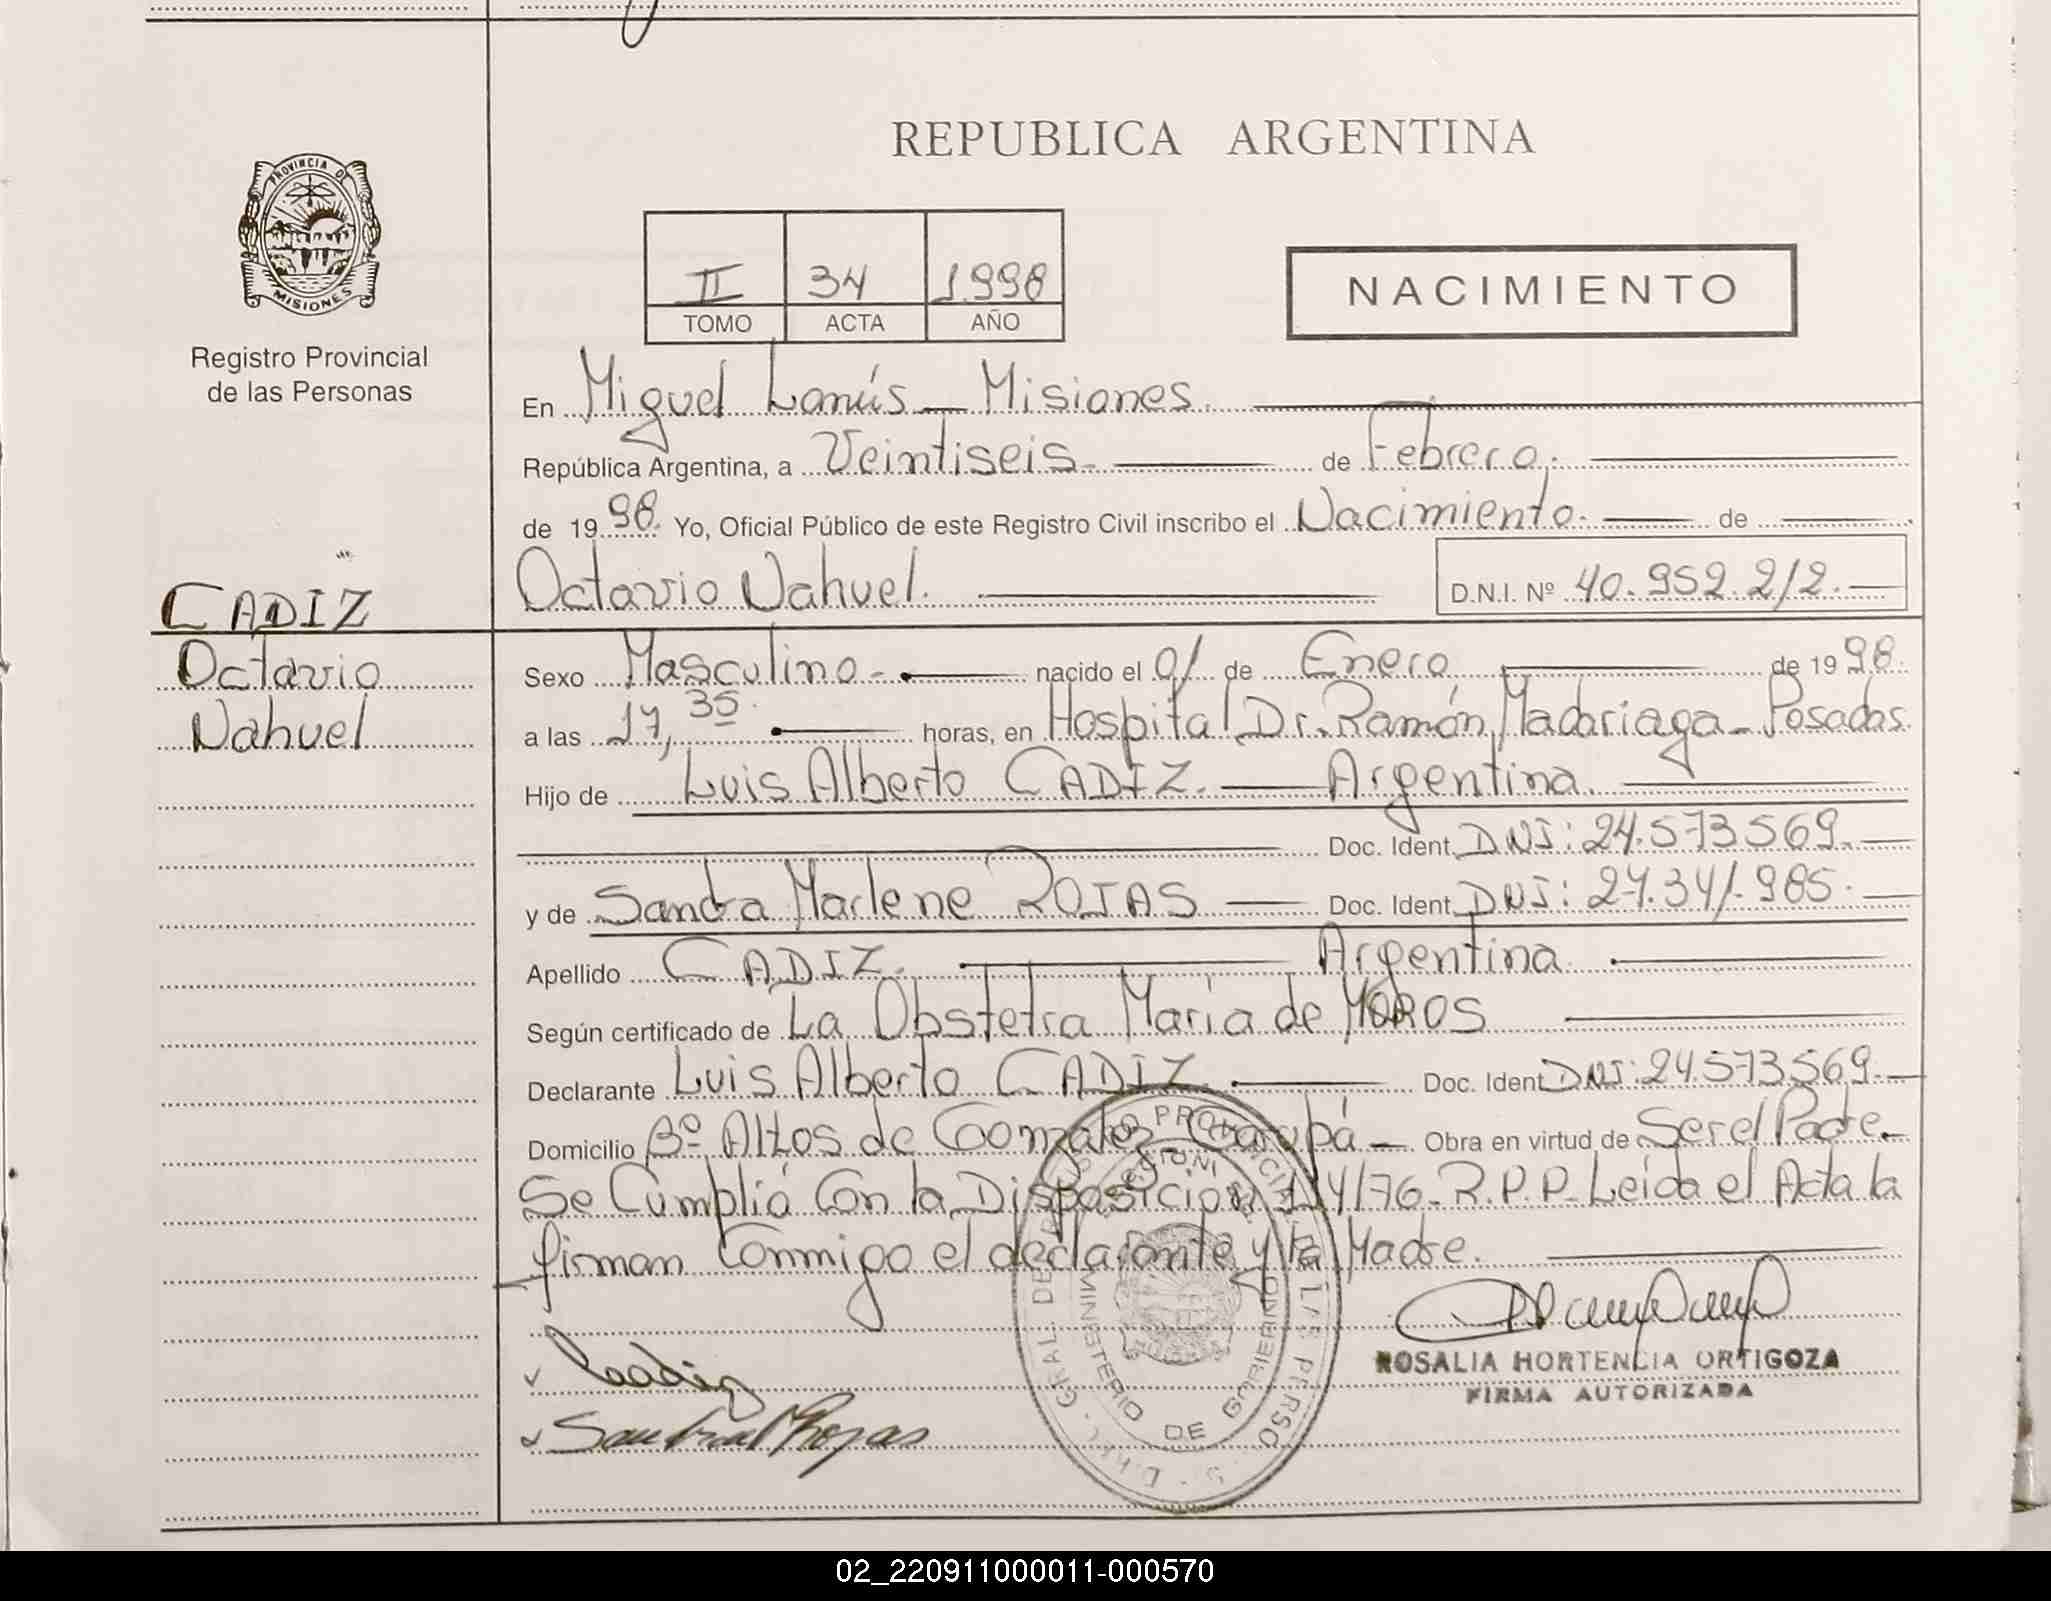 REPUBLICA ARGENTINA
PROVINCIA DE
MISIONES
Registro Provincial
de las Personas
II 34 1998
TOMO ACTA AÑO
NACIMIENTO
En Miguel Lanús - Misiones.
República Argentina, a Veintiseis. de Febrero.
de 1998. Yo, Oficial Público de este Registro Civil inscribo el Nacimiento. de
Octavio Nahuel. D.N.I. Nº 40.952.212.
CADIZ
Octavio
Nahuel
Sexo Masculino. nacido el 01 de Enero de 1998.
a las 17,35. horas, en Hospital Dr. Ramón Madariaga - Posadas.
Hijo de Luis Alberto CADIZ. Argentina.
Doc. Ident. DNI: 24.573.569.
y de Sandra Marlene ROJAS Doc. Ident. DNI: 27.341.985.
Apellido CADIZ. Argentina.
Según certificado de La Obstetra María de MOROS
Declarante Luis Alberto CADIZ. Doc. Ident. DNI: 24.573.569.
Domicilio Bº Altos de Gonzalez - Garupá - Obra en virtud de Ser el Padre.
Se Cumplió Con la Disposición 114/76 - R.P.P. Leida el Acta la
firman Conmigo el declarante y la Madre.
Cadiz
Sandra M Rojas
MINISTERIO DE GOBIERNO
ROSALIA HORTENCIA ORTIGOZA
FIRMA AUTORIZADA
02_220911000011-000570